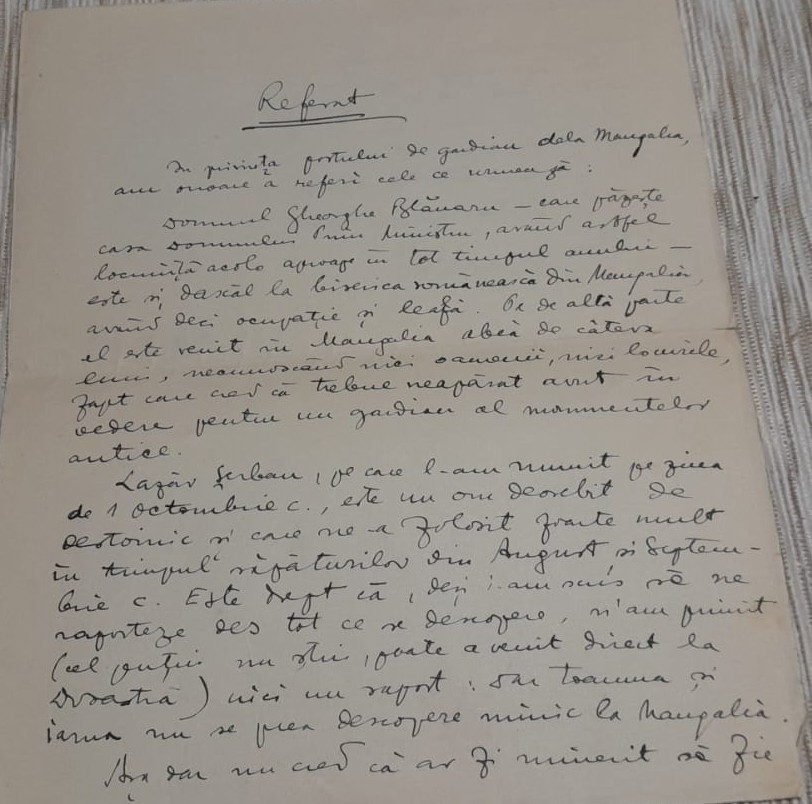 Referat
In privința postului de gardian dela Mangalia,
am onoare a referi cele ce urmează:
Domnul Gheorghe Blănaru – care păzește
casa Domnului Prim Ministru, având astfel
locuință acolo aproape în tot timpul anului –
este și dascăl la biserica românească din Mangalia,
având deci ocupație și leafă. Pe de altă parte
el este venit în Mangalia abia de câteva
luni, necunoscând nici oamenii, nici locurile,
fapt care cred că trebue neapărat avut în
vedere pentru un gardian al monumentelor
antice.
Lazăr Șerban, pe care l-am numit pe ziua
de 1 Octombrie c., este un om deosebit de
destoinic și care ne-a folosit foarte mult
în timpul săpăturilor din August și Septem-
brie c. Este drept că, deși i-am scris să ne
raporteze des tot ce se descopere, n'am primit
(cel puțin nu știu, poate a venit direct la
Dvoastră) nici un raport: dar toamna și
iarna nu se prea descopere nimic la Mangalia.
Așa dar nu cred că ar fi nimerit să fie